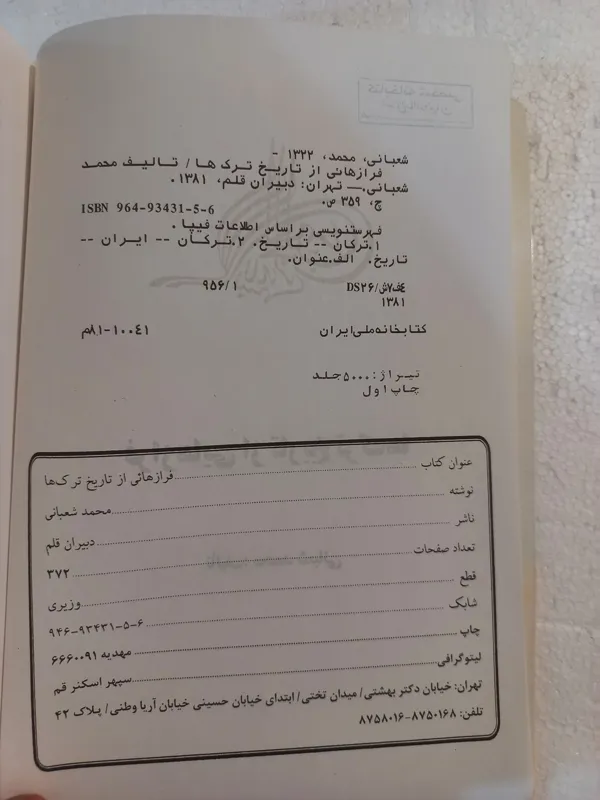 شعبانی، محمد، ۱۳۲۲ -
فرازهائی از تاریخ ترک ها / تالیف محمد
شعبانی.— تهران: دبیران قلم، ۱۳۸۱.
ج، ۳۵۹ ص.
ISBN 964-93431-5-6
فهرستنویسی براساس اطلاعات فیپا.
۱.ترکان -- تاریخ. ۲.ترکان -- ایران --
تاریخ. الف.عنوان.
۹۵۶/۱ DS۲۶/ش۷ف۴
۱۳۸۱
کتابخانه ملی ایران ۸۱-۱۰۰۴۱م
تیراژ: ۵۰۰۰ جلد
چاپ اول
عنوان کتاب ........ فرازهائی از تاریخ ترک‌ها
نوشته ........ محمد شعبانی
ناشر ........ دبیران قلم
تعداد صفحات ........ ۳۷۲
قطع ........ وزیری
شابک ........ ۹۴۶-۹۳۴۳۱-۵-۶
چاپ ........ مهدیه ۶۶۶۰۰۹۱
لیتوگرافی ........ سپهر اسکنر قم
تهران: خیابان دکتر بهشتی/ میدان تختی/ ابتدای خیابان حسینی خیابان آریا وطنی/ پلاک ۴۲
تلفن: ۸۷۵۰۱۶۸-۸۷۵۸۰۱۶